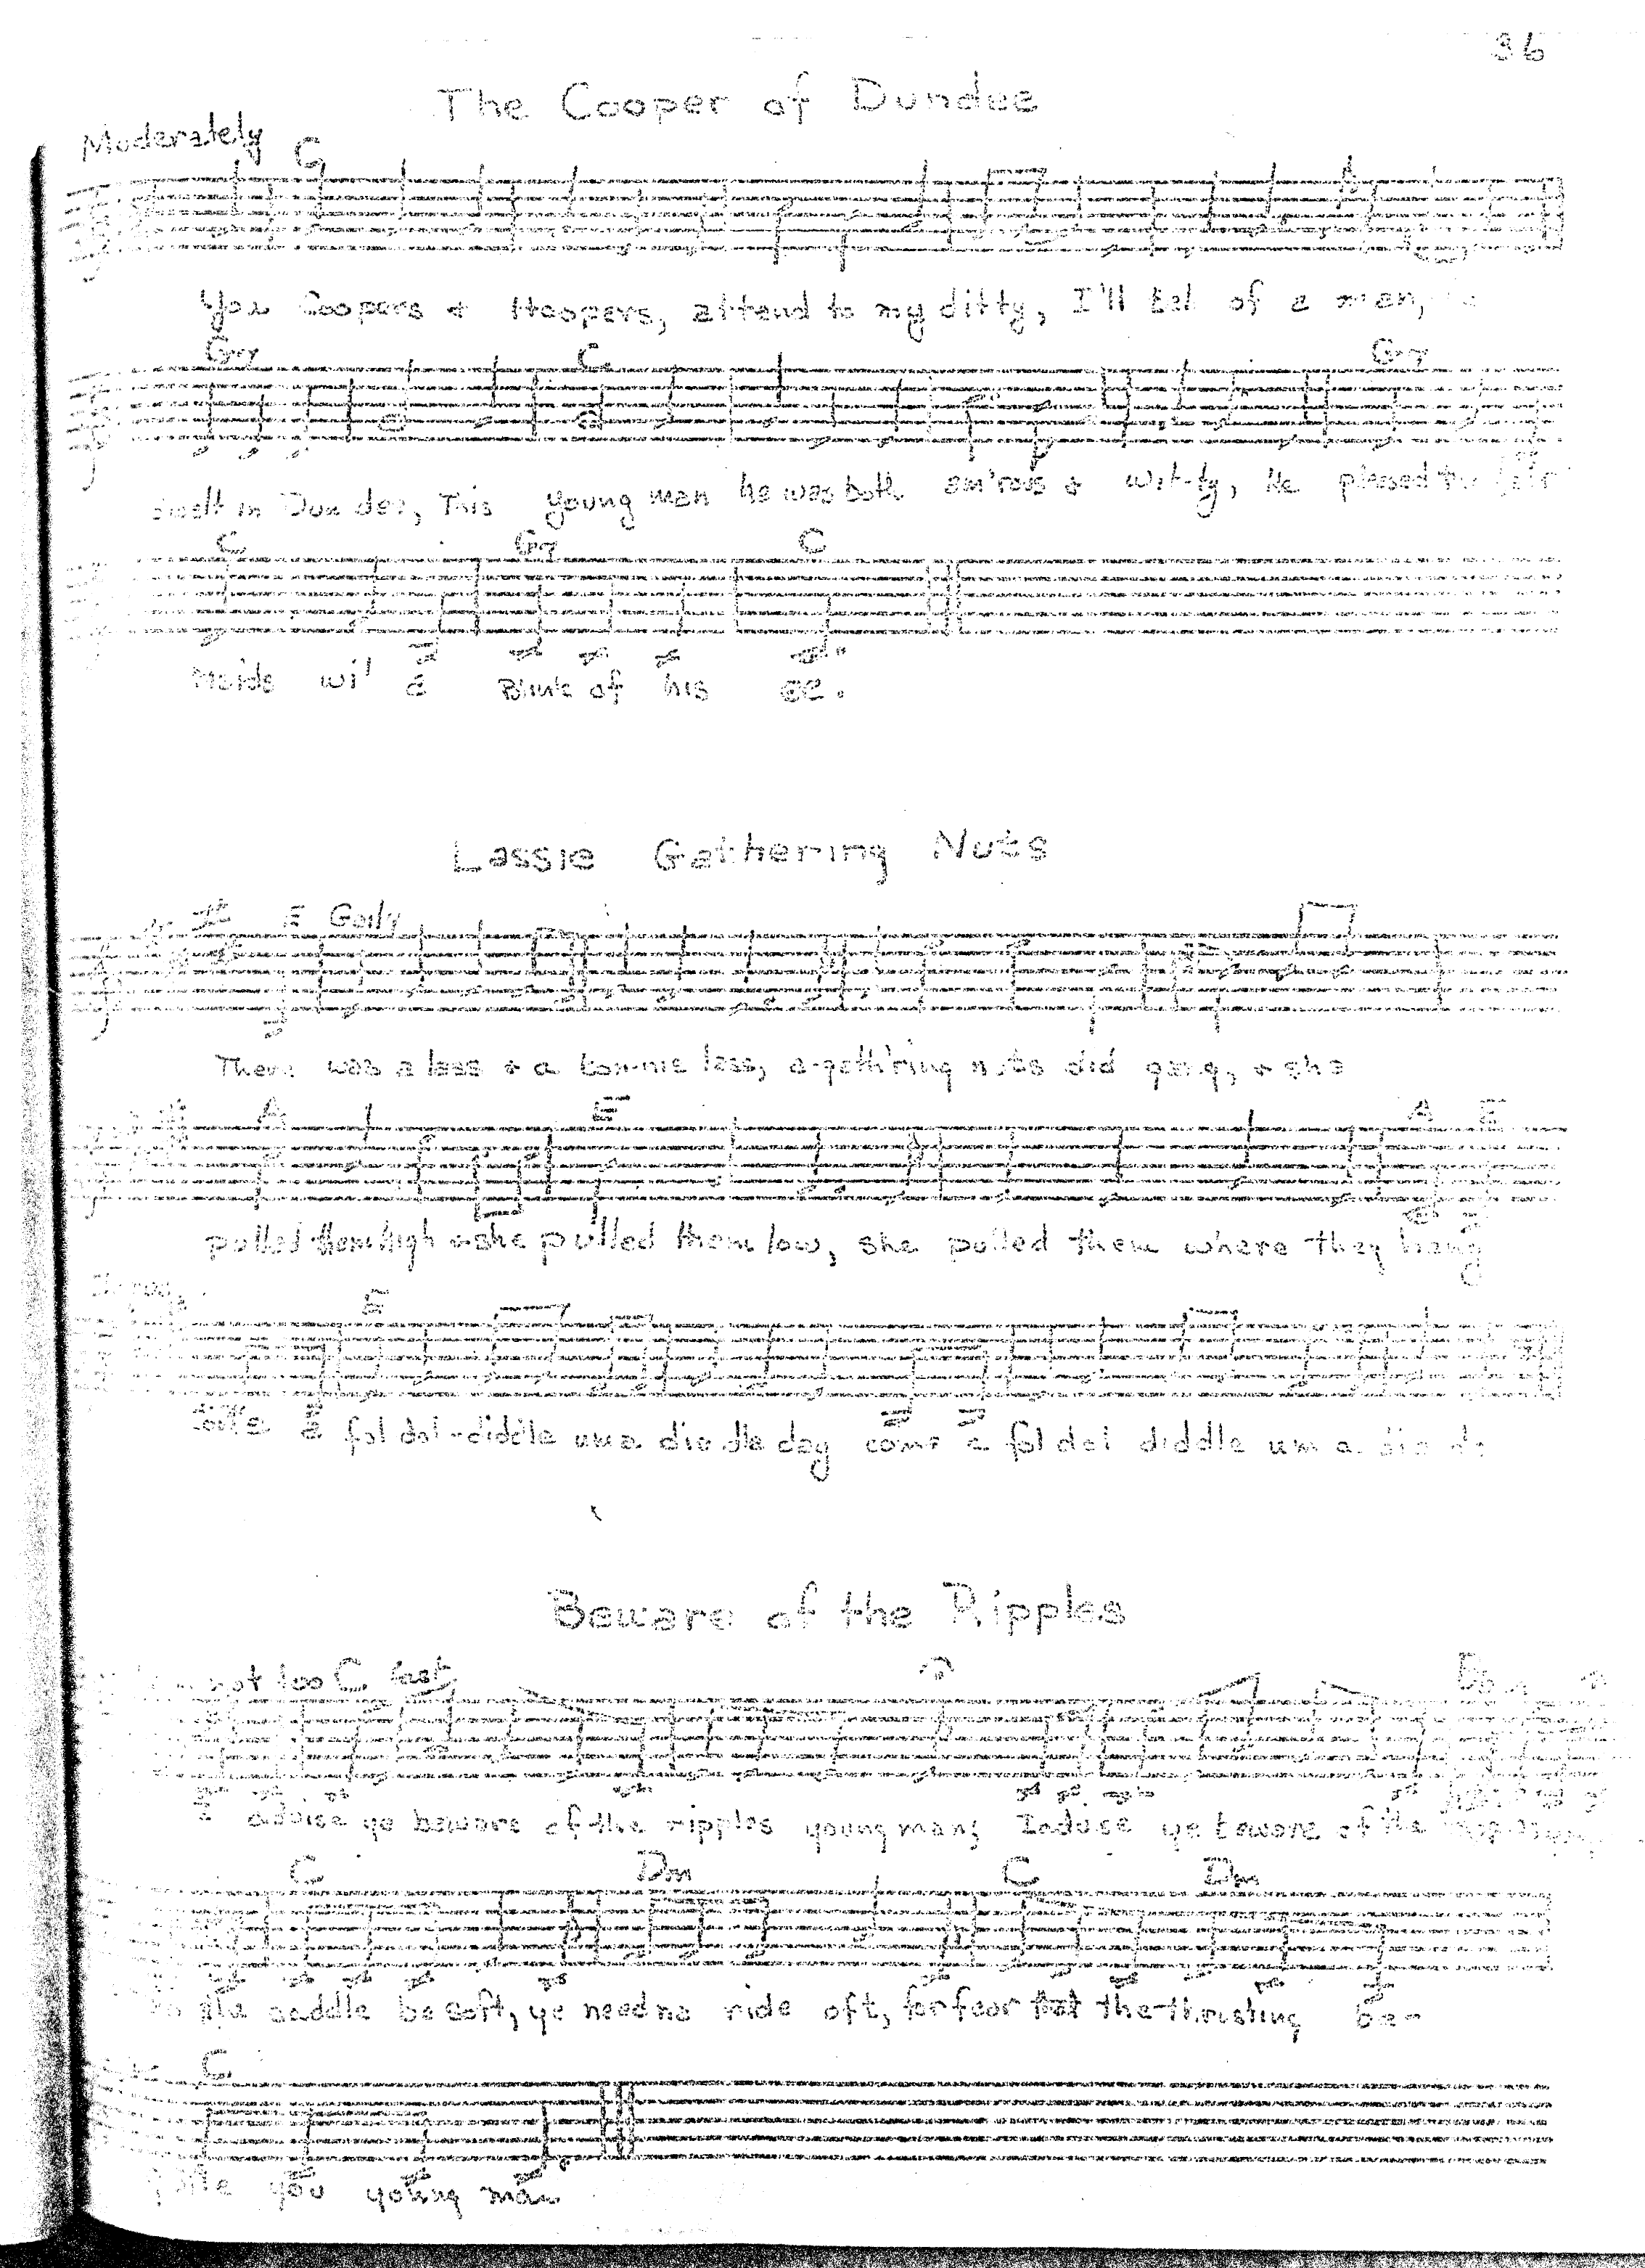 36
The Cooper of Dundee
Moderately C
You Coopers + Hoopers, attend to my ditty, I'll tell of a man,
G7 C G7
dwelt in Dundee, This young man he was both am'rous + wit-ty, He pleased the fair
C G7 C
Maids wi' a Blink of his ee.
Lassie Gathering Nuts
E Gaily
There was a lass + a bonnie lass, a-gath'ring nuts did gang, + she
A E A E
pulled them high + she pulled them low, she pulled them where they hang
Chorus
E
a fol dol-diddle um a die dle day come a fol dol diddle um a die
Beware of the Ripples
not too C fast
I advise ye beware of the ripples young man, I advise ye beware of the
C Dm C Dm
the saddle be soft, ye need no ride oft, for fear the thrusting be-
C
you young man